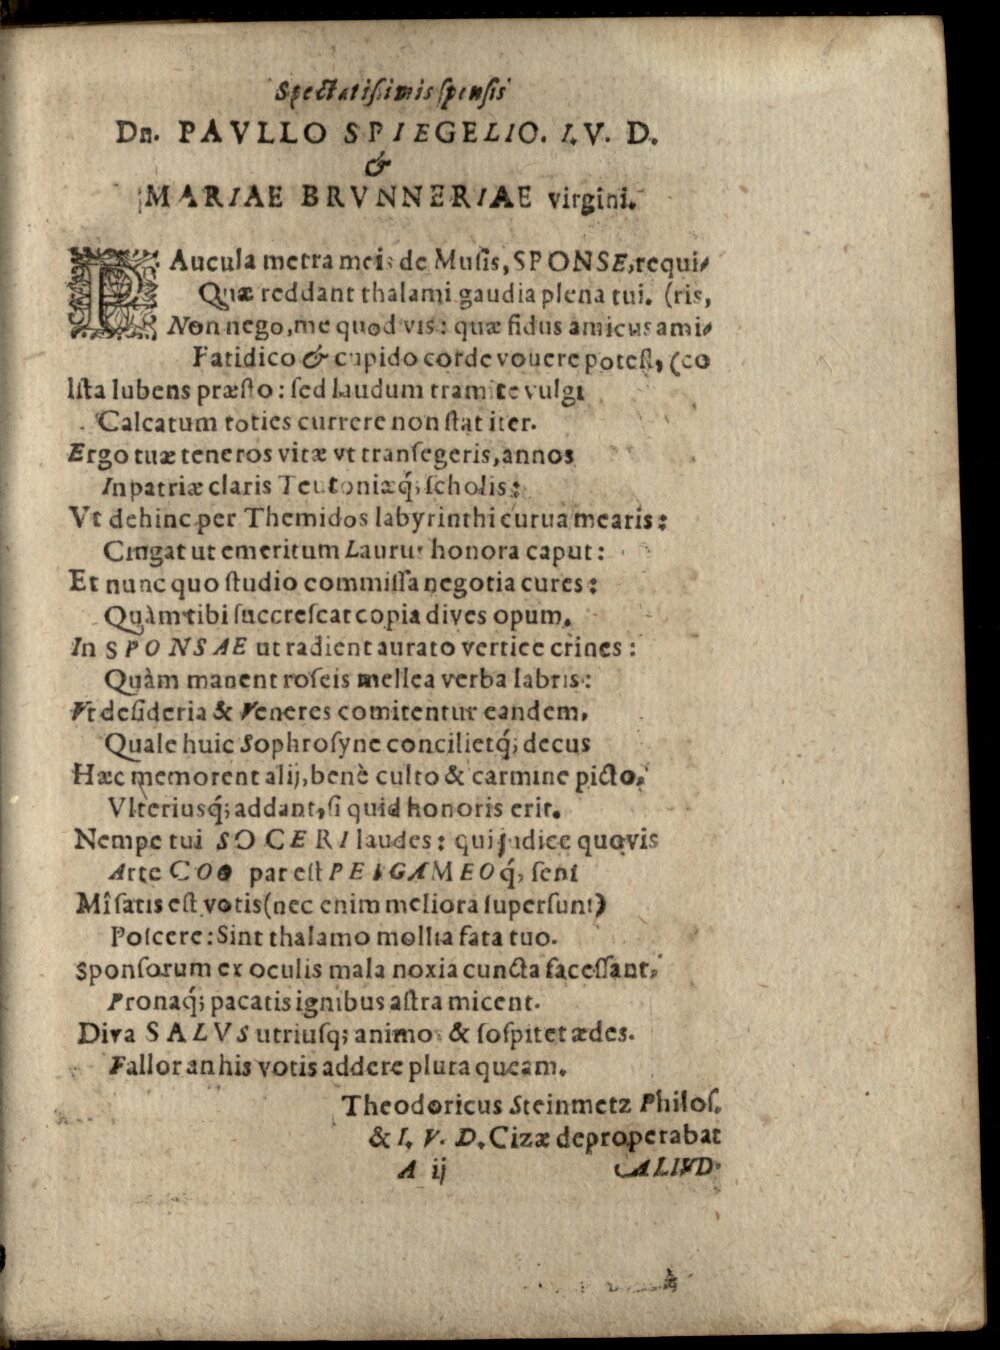 Spectatiſsimis ſponſis
Dn. PAVLLO SPIEGELIO. I. V. D.
&
MARIAE BRVNNERIAE virgini.
PAucula metra meis de Muſis, SPONSE, requi-
Quæ reddant thalami gaudia plena tui. (ris,
Non nego, me quod vis: quæ fidus amicus ami-
Fatidico & cupido corde vovere poteſt, (co
Iſta lubens præſto: ſed laudum tramite vulgi
Calcatum toties currere non ſtat iter.
Ergo tuæ teneros vitæ vt tranſegeris, annos
In patriæ claris Teutoniæq́; ſcholis:
Vt dehinc per Themidos labyrinthi curua mearis:
Cingat ut emeritum Laurus honora caput:
Et nunc quo ſtudio commiſſa negotia cures:
Quàm tibi ſuccreſcat copia dives opum.
In SPONSAE ut radient aurato vertice crines:
Quàm manent roſeis mellea verba labris:
Vt deſideria & Veneres comitentur eandem,
Quale huic Sophroſyne concilietq́; decus
Hæc memorent alij, benè culto & carmine picto,
Vlteriusq́; addant, ſi quid honoris erit.
Nempe tui SOCERI laudes: qui judice quovis
Arte COO par eſt PERGAMEOq́, ſeni
Mî ſatis eſt votis (nec enim meliora ſuperſunt)
Poſcere: Sint thalamo mollia fata tuo.
Sponſorum ex oculis mala noxia cuncta faceſſant,
Pronaq́; pacatis ignibus aſtra micent.
Diva SALVS utriuſq; animos & ſoſpitet ædes.
Fallor an his votis addere plura queam.
Theodoricus Steinmetz Philoſ.
& I. V. D. Cizæ deproperabat
A ij
ALIVD